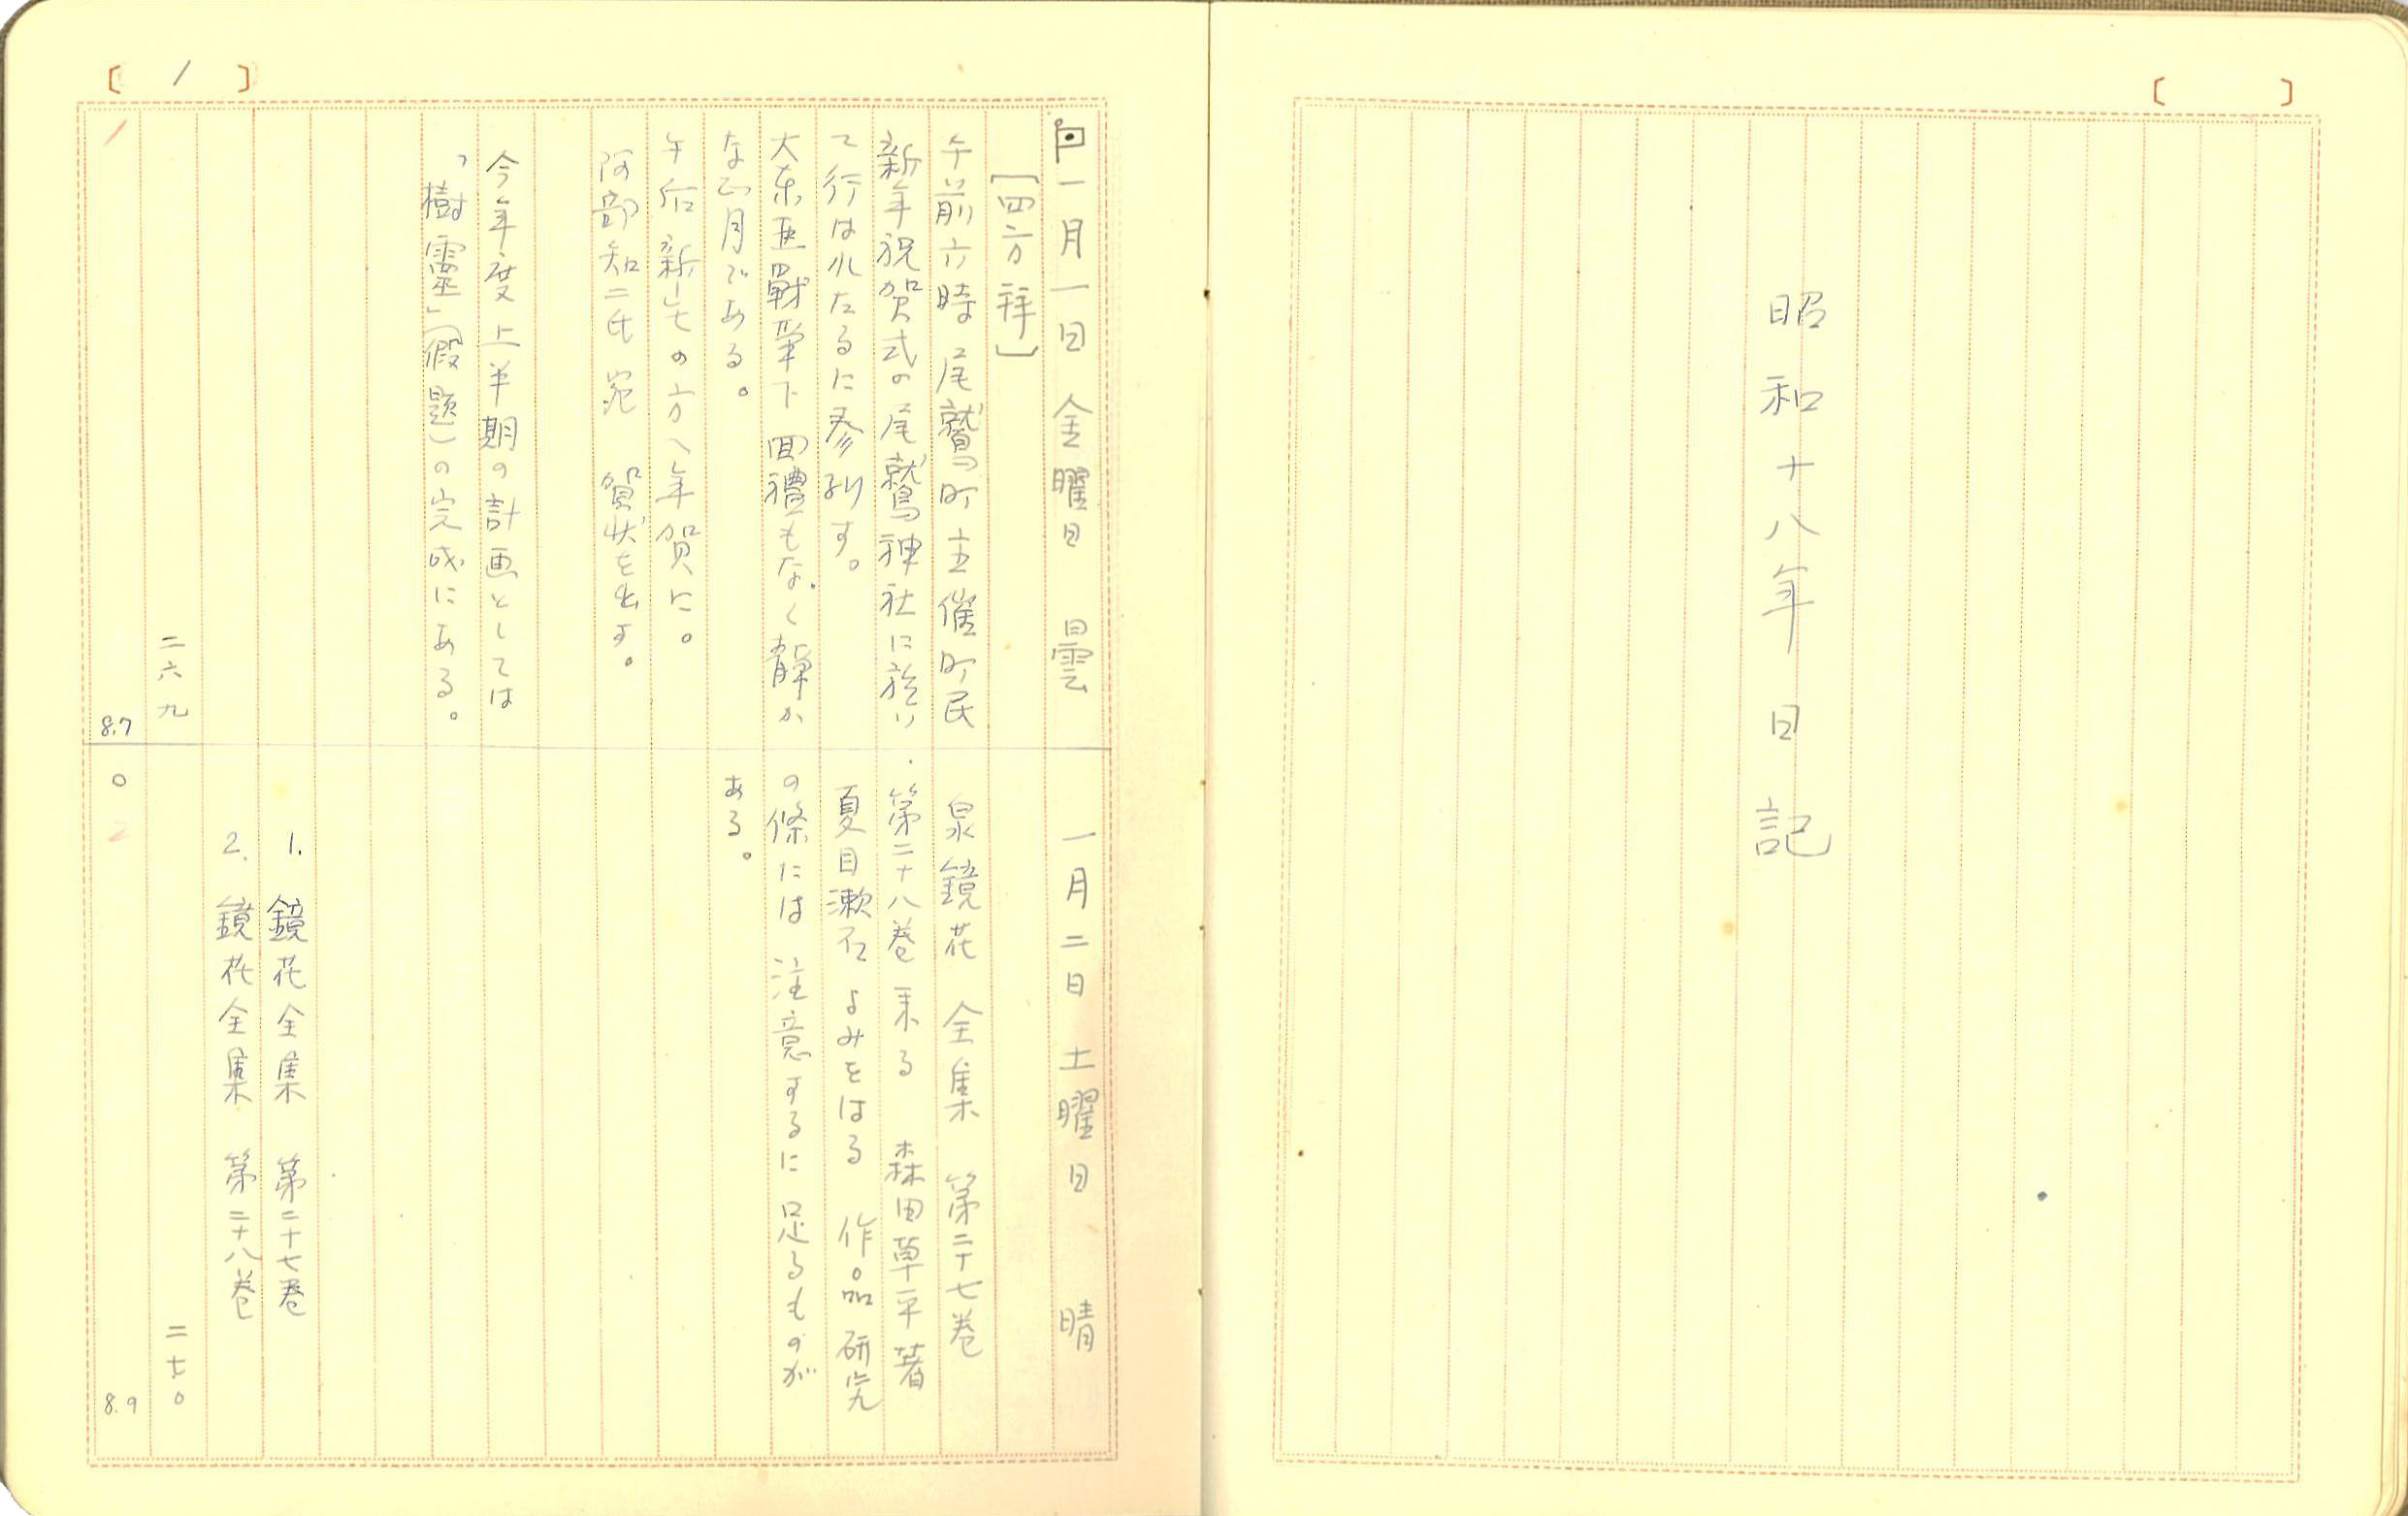 昭和十八年日記
〔 1 〕
一月一日 金曜日 曇
[四方拝]
午前六時 尾鷲町主催町民
新年祝賀式の尾鷲神社に於い
て行はれたるに参列す。
大東亜戰爭下 回禮もなく靜か
な正月である。
午后新七の方へ年賀に。
阿部知二氏 宛 賀状を出す。
今年度上半期の計画としては
「樹靈」(假題)の完成にある。
二六九
8.7
一月二日 土曜日 晴
泉鏡花 全集 第二十七巻
第二十八巻 来る 森田草平著
夏目漱石 よみをはる 作品研究
の條には 注意するに足るものが
ある。
1. 鏡花全集 第二十七巻
2. 鏡花全集 第二十八巻
二七〇
0 2
8.9